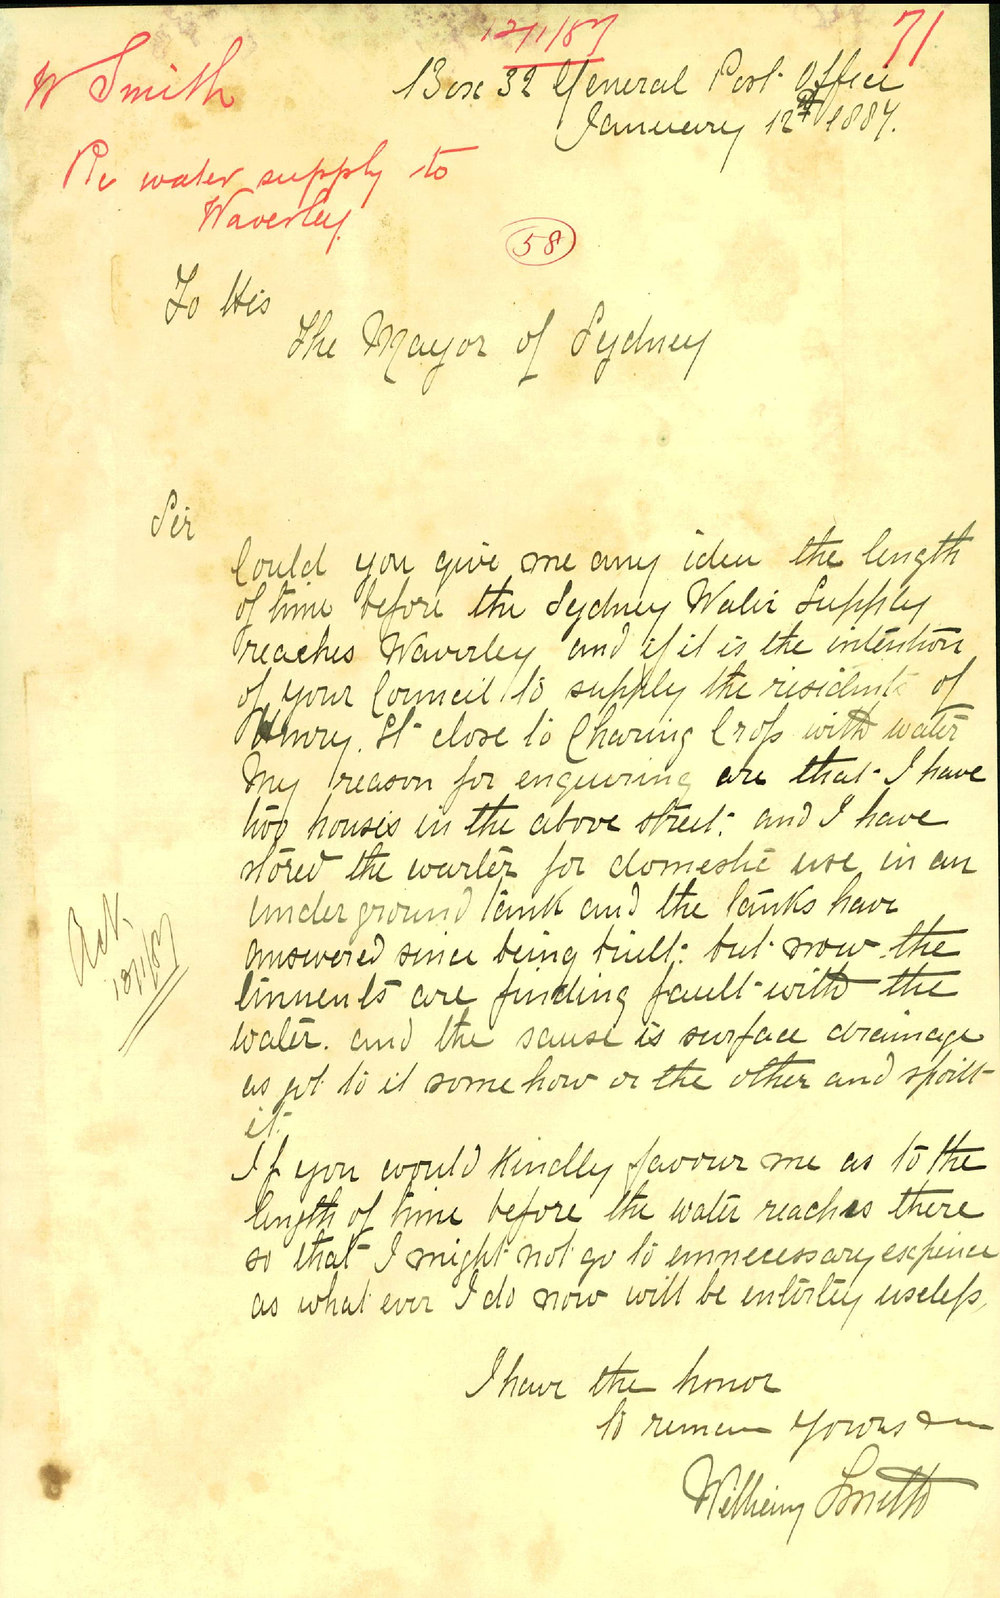 12/1/87
71
W Smith
Box 32 General Post Office
January 12th 1887.
Re water supply to
Waverley.
58
To His
The Mayor of Sydney
Sir
Could you give me any idea the length
of time before the Sydney Water Supply
reaches Waverley and if it is the intention
of your Council to supply the residents of
Henry. St close to Charing Cross with water
My reason for enquiring are that I have
two houses in the above street: and I have
stored the warter for domestic use in an
under ground tank and the tanks have
answered since being built: but now the
tinnents are finding fault with the
water. and the cause is surface drainage
as got to it some how or the other and spoilt
it.
If you would kindly favour me as to the
length of time before the water reaches there
so that I might not go to unnecessary expence
as what ever I do now will be entirley useless,
Ack.
13/1/87
I have the honor
to remain yours
William Smith